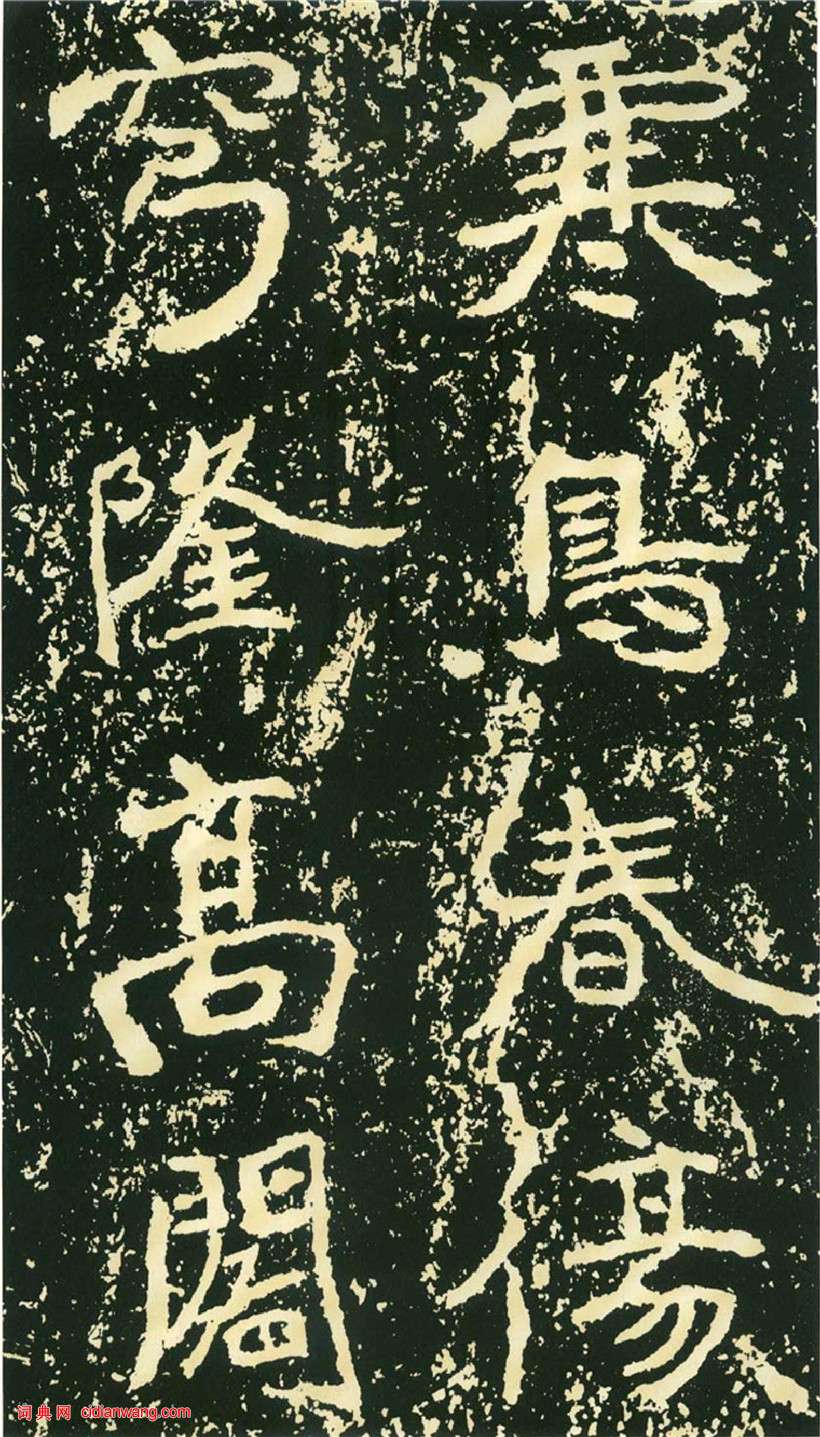 寒鳥春傷
穹隆高闊
词典网 cidianwang.com